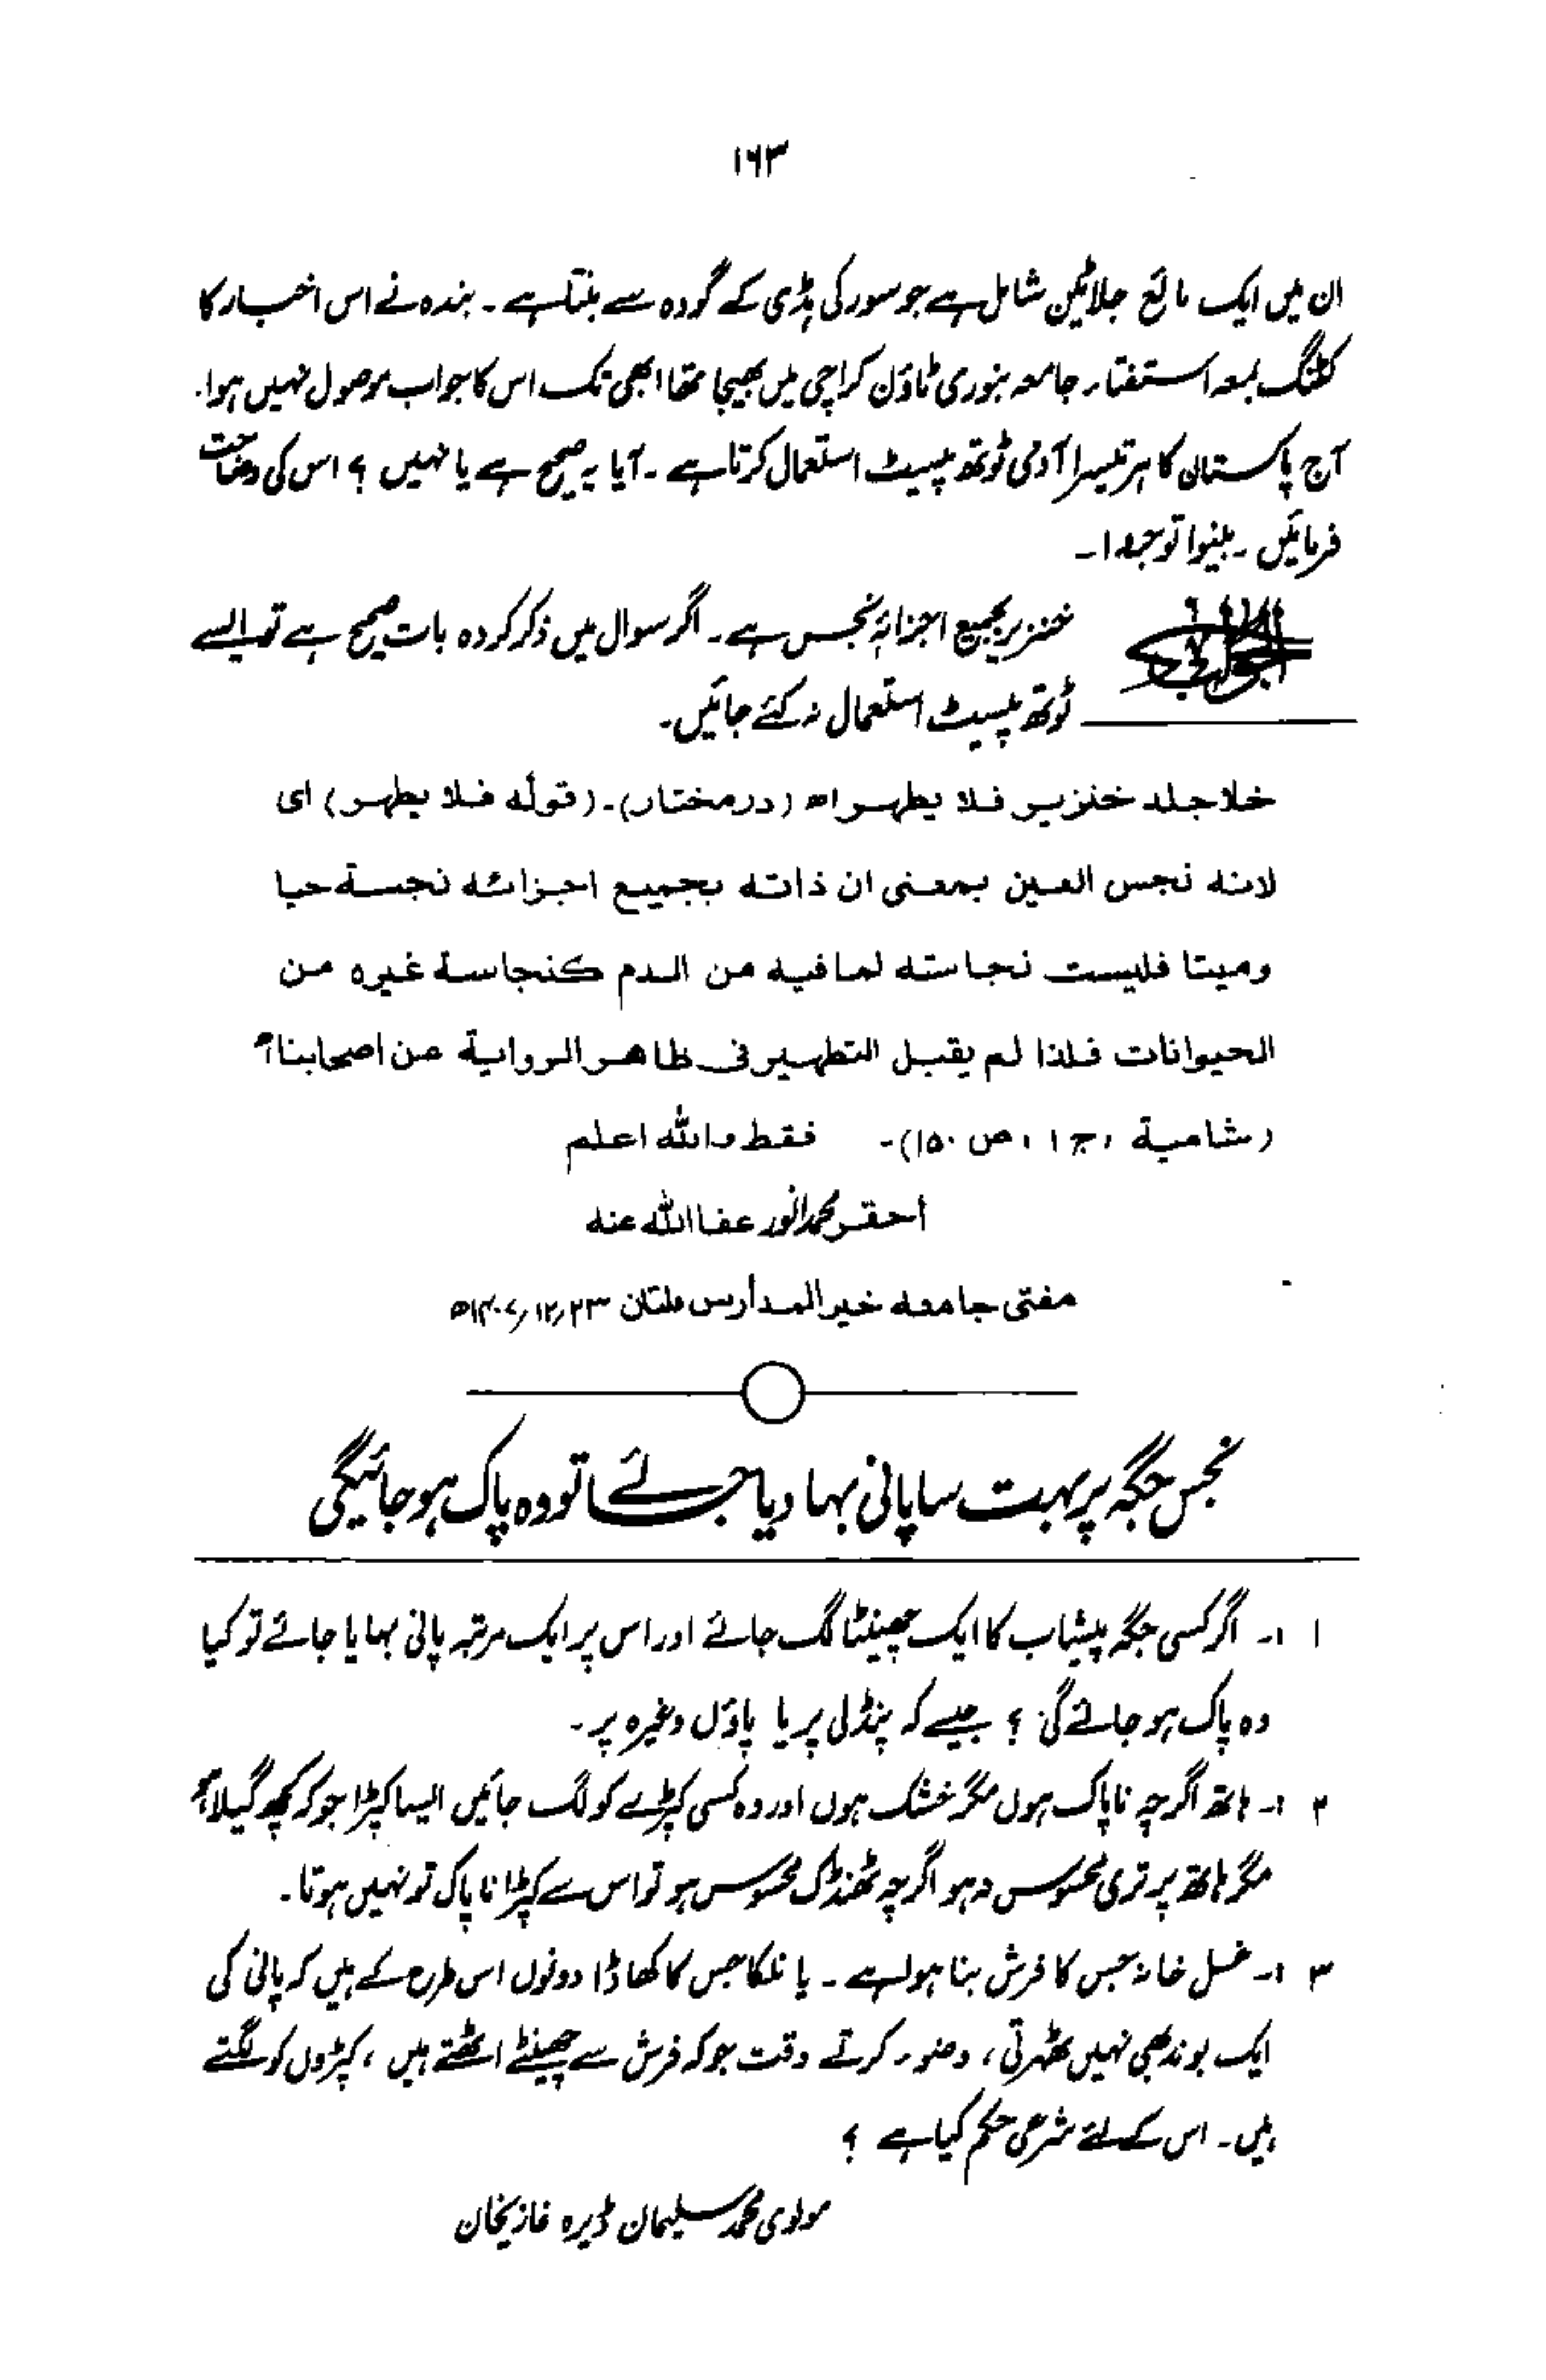 ۱۶۳
ان میں ایک مائع جلاٹین شامل ہے جو سور کی ہڈی کے گودہ سے بنتا ہے ۔ بندہ نے اس اخبار کا
کٹنگ بمعہ استفتاء جامعہ بنوری ٹاؤن کراچی میں بھیجا تھا ابھی تک اس کا جواب موصول نہیں ہوا۔
آج پاکستان کا ہر تیسرا آدمی ٹوتھ پیسٹ استعمال کرتا ہے ۔ آیا یہ صحیح ہے یا نہیں ؟ اس کی وضاحت
فرمائیں ۔ بینوا توجروا ۔
الجواب خنزیر بجمیع اجزائہٖ نجس ہے ۔ اگر سوال میں ذکر کردہ بات صحیح ہے تو ایسے
ٹوتھ پیسٹ استعمال نہ کئے جائیں۔
خلا جلد خنزير فلا يطهر اھ (درمختار)۔ (قوله فلا يطهر) ای
لانه نجس العين بمعنى ان ذاته بجميع اجزائه نجسة حيا
وميتا فليست نجاسته لما فيه من الدم كنجاسة غيره من
الحيوانات فلذا لم يقبل التطهير فی ظاهر الرواية عن اصحابنا اھ
(شامية ، ج ۱ ، ص ۱۵۰)۔ فقط واللہ اعلم
أحقر محمد انور عفا اللہ عنہ
مفتی جامعہ خیر المدارس ملتان ۲۳؍۱۲؍۱۴۰۷ھ
نجس جگہ پر بہت سا پانی بہا دیا جائے تو وہ پاک ہو جائیگی
۱ ؛۔ اگر کسی جگہ پیشاب کا ایک چھینٹا لگ جائے اور اس پر ایک مرتبہ پانی بہایا جائے تو کیا
وہ پاک ہو جائے گی ؟ جیسے کہ پنڈلی پر یا پاؤں وغیرہ پر ۔
۲ ؛۔ ہاتھ اگرچہ ناپاک ہوں مگر خشک ہوں اور وہ کسی کپڑے کو لگ جائیں ایسا کپڑا جو کہ کچھ گیلا ہو
مگر ہاتھ پر تری محسوس نہ ہو اگرچہ ٹھنڈک محسوس ہو تو اس سے کپڑا ناپاک تو نہیں ہوتا ۔
۳ ؛۔ غسل خانہ جس کا فرش بنا ہوا ہے ۔ یا نلکا جس کا کھاڈا دونوں اس طرح کے ہیں کہ پانی کی
ایک بوند بھی نہیں ٹھہرتی ، وضوء کرتے وقت جو کہ فرش سے چھینٹے اٹھتے ہیں ، کپڑوں کو لگتے
ہیں ۔ اس کے لئے شرعی حکم کیا ہے ؟
مولوی محمد سلیمان ڈیرہ غازیخان